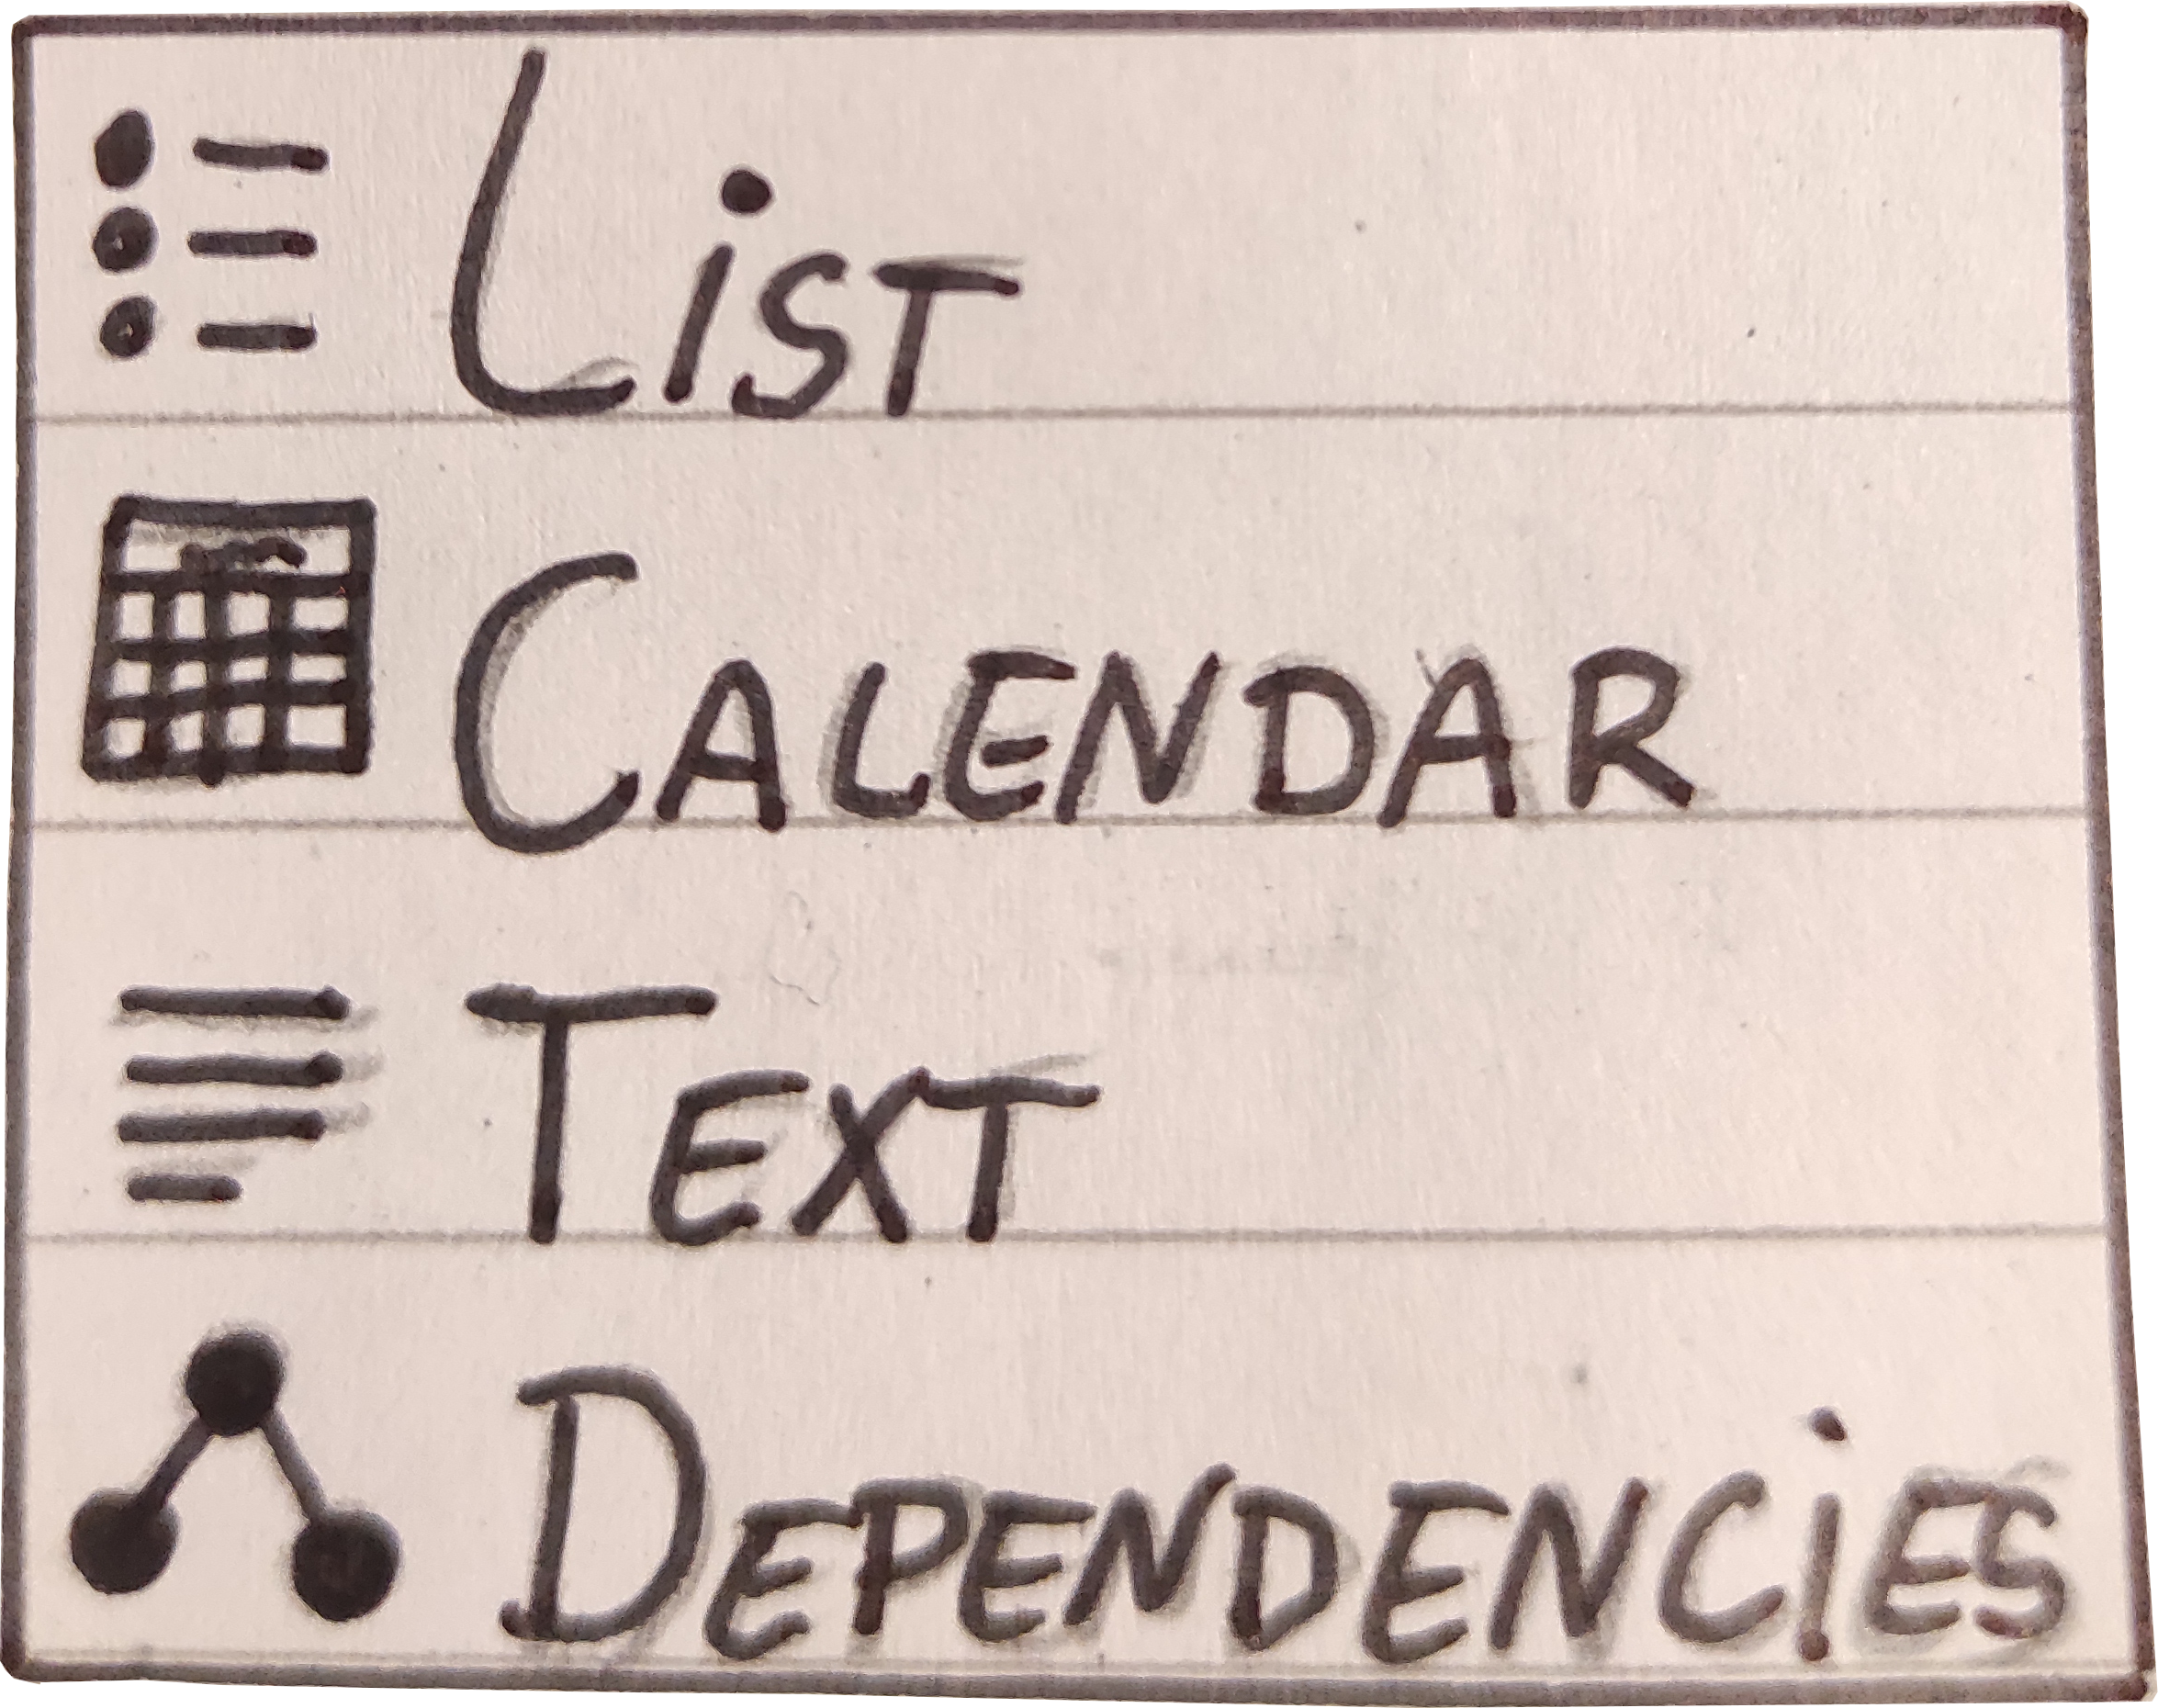 List
Calendar
Text
Dependencies